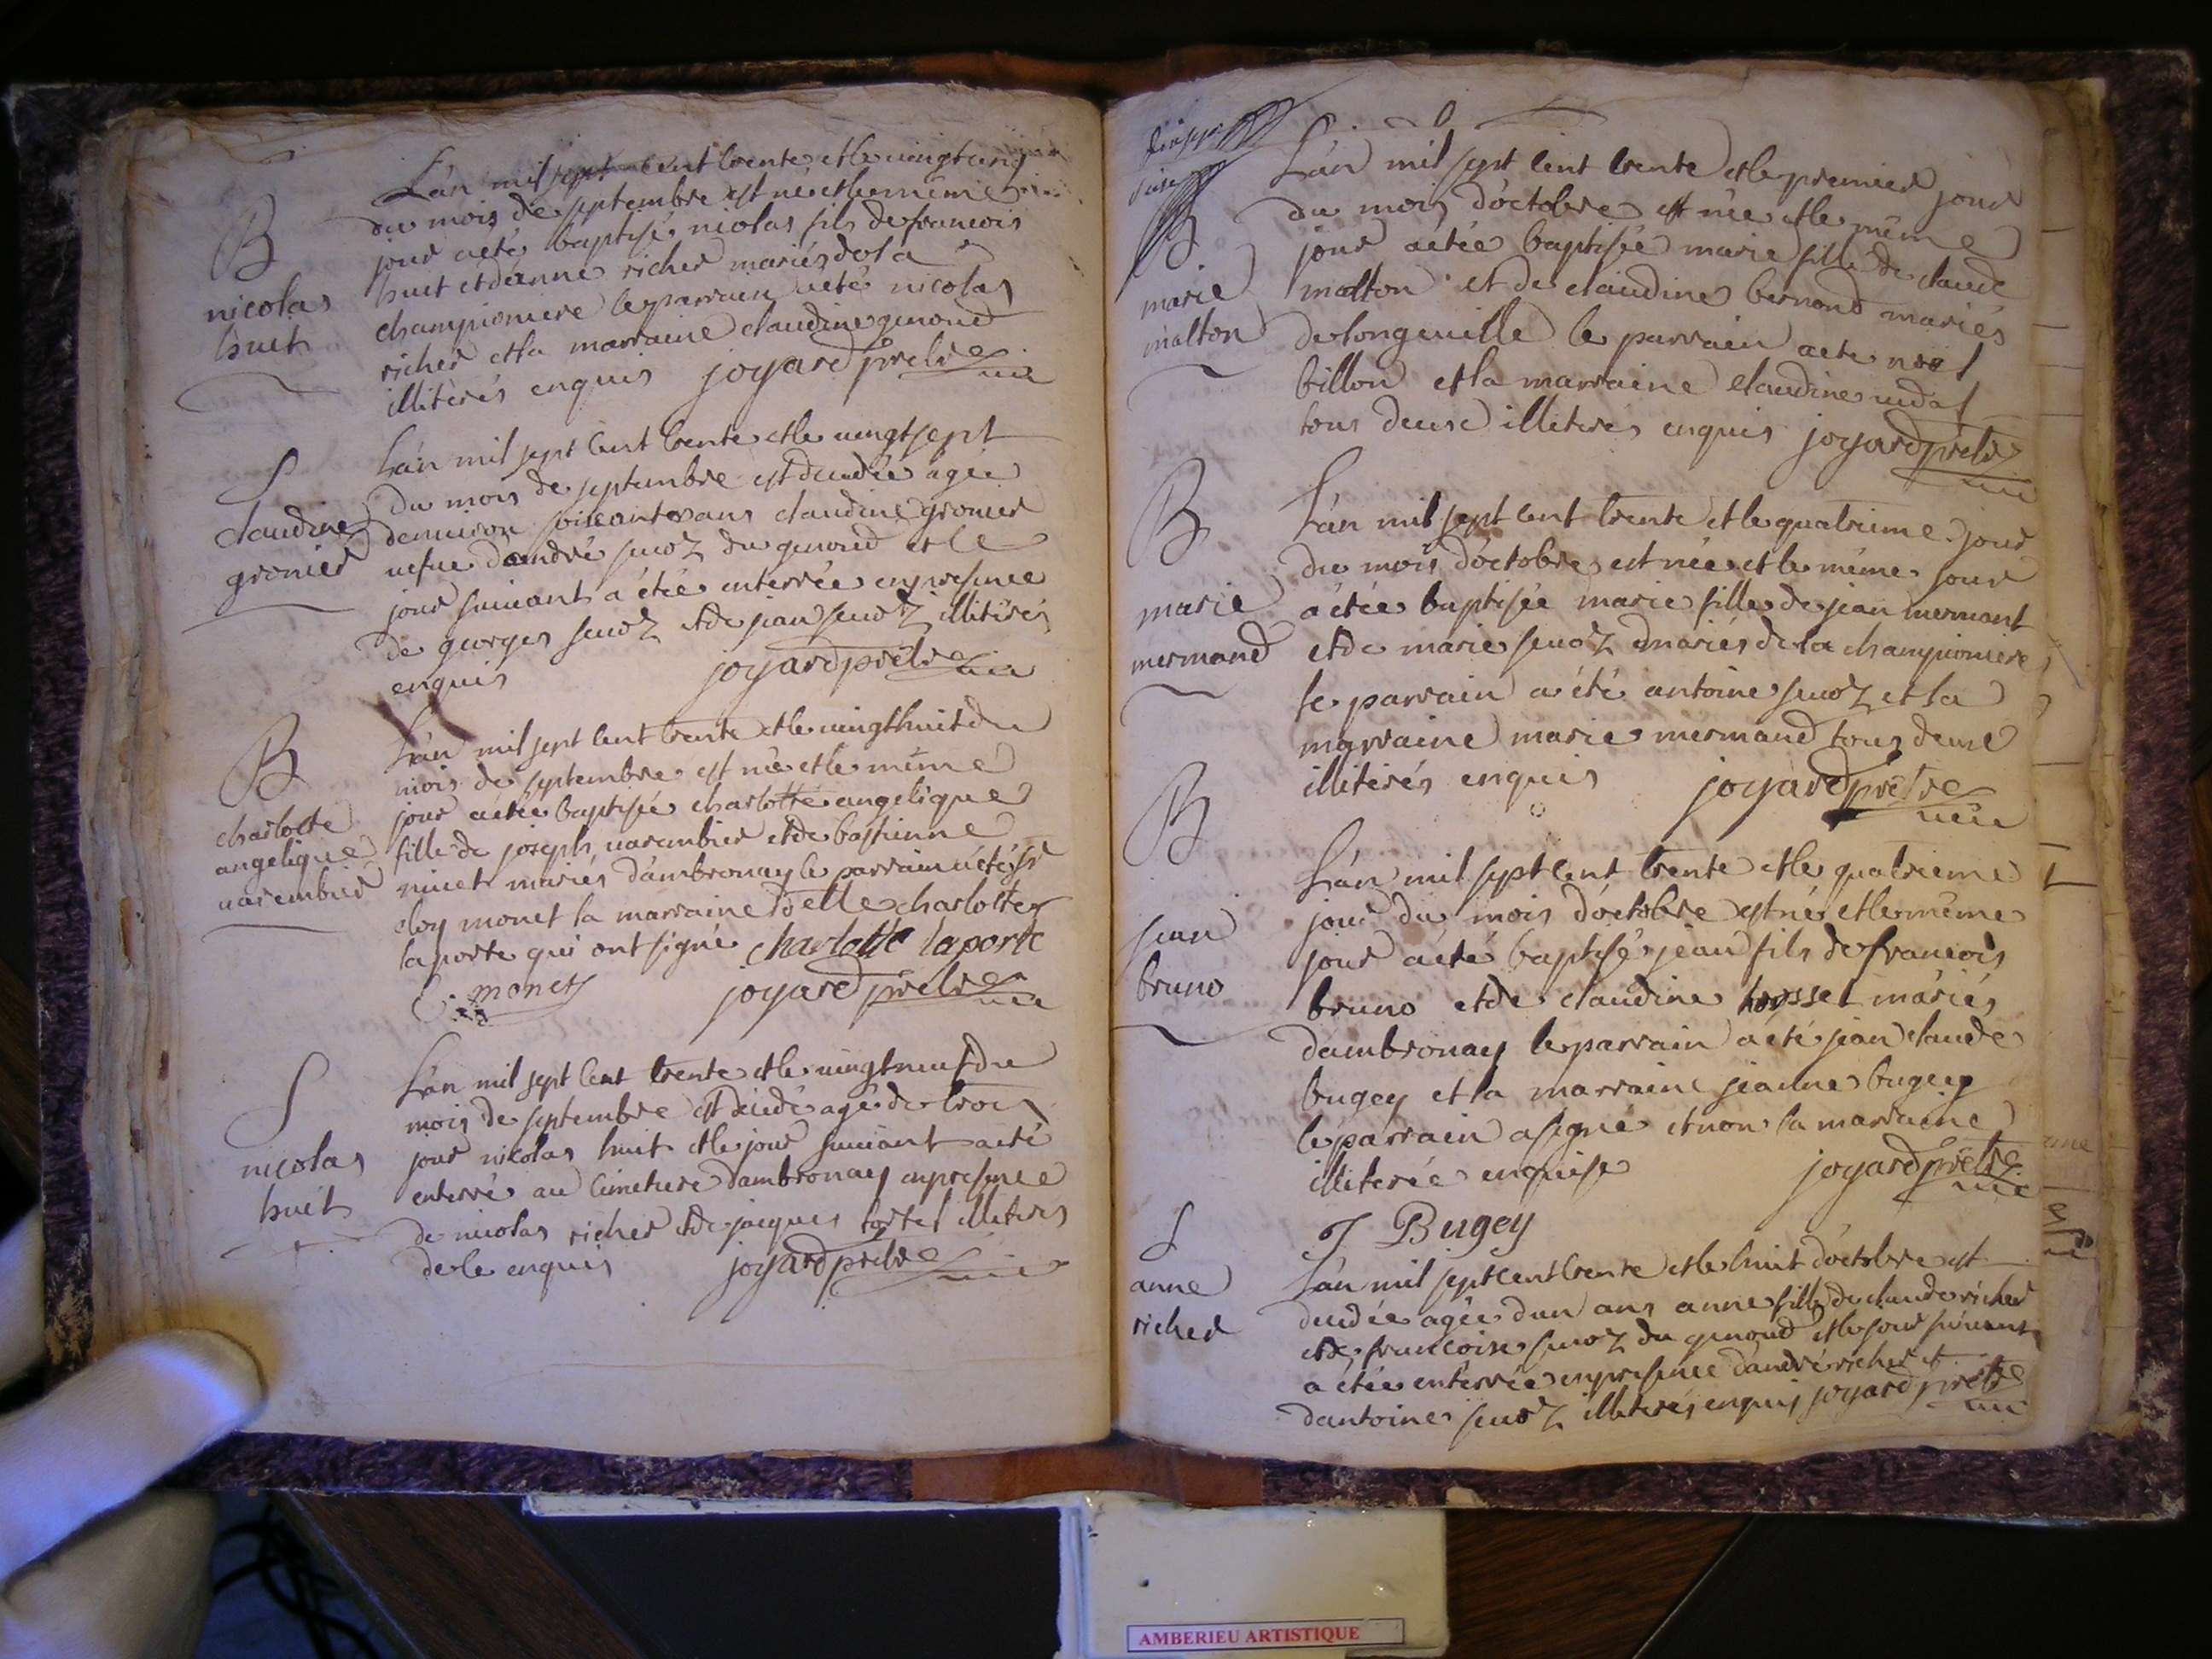 B
nicolas
huet
L'an mil sept cent trente et le vingt
du mois de septembre est né et le même
jour a été baptisé nicolas fils de francois
huet et d'anne richer mariés de la
championiere le parrain a été nicolas
richer et la marraine claudine genoud
illiterés enquis joyard prêtre
S
claudine
gronier
L'an mil sept cent trente et le vingt sept
du mois de septembre est decedée agée
denviron soixante ans claudine gronier
vefue d'andré seuoz du genoud et le
jour suiuant a étée enterrée en presence
de georges seuoz et de jean seuoz illiterés
enquis joyard prêtre
B
charlotte
angelique
uarembier
L'an mil sept cent trente et le vingt huit du
mois de septembre est née et le même
jour a étée baptisée charlotte angelique
fille de joseph uarembier et de bastienne
mariés d'ambronay le parrain a été sr
eloy monet la marraine delle charlotte
laporte qui ont signé charlotte laporte
E. monet joyard prêtre
S
nicolas
huet
L'an mil sept cent trente et le vingt neuf du
mois de septembre est decedé agé de trois
jour nicolas huit et le jour suiuant a été
enterré au cimetiere d'ambronay en presence
de nicolas richer et de jacques tortel illiterés
de le enquis joyard prêtre
B
marie
malton
L'an mil sept cent trente et le premier jour
du mois d'octobre est née et le même
jour a étée baptisée marie fille de claude
malton et de claudine bernond mariés
de longeuille le parrain a été noel
billon et la marraine claudine uidal
tous deux illiterés enquis joyard prêtre
B
marie
mermand
L'an mil sept cent trente et le quatrieme jour
du mois d'octobre est née et le même jour
a étée baptisée marie fille de jean mermant
et de marie seuoz mariés de la championiere
le parrain a été antoine seuoz et la
marraine marie mermand tous deux
illiterés enquis joyard prêtre
B
jean
bruno
L'an mil sept cent trente et le quatrieme
jour du mois d'octobre est né et le même
jour a été baptisé jean fils de francois
bruno et de claudine mariés
d'ambronay le parrain a été jean claude
bugey et la marraine jeanne bugey
le parrain a signé et non la marraine
illiterée enquise joyard prêtre
J Bugey
S
anne
richer
L'an mil sept cent trente et le huit d'octobre est
decedée agée d'un ans anne fille de claude richer
et de francoise seuoz du genoud et le jour suiuant
a étée enterrée en presence d'andré richer et
d'antoine seuoz illiterés enquis joyard prêtre
AMBERIEU ARTISTIQUE